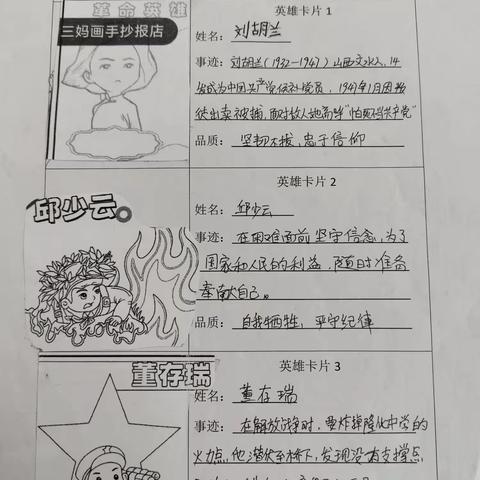 革命英雄
三妈画手抄报店
英雄卡片 1
姓名：刘胡兰
事迹：刘胡兰（1932—1947）山西文水人，14
岁成为中国共产党候补党员，1947年1月因叛
徒出卖被捕，面对敌人她高呼“怕死不当共产党”
品质：坚韧不拔，忠于信仰
邱少云。
英雄卡片 2
姓名：邱少云
事迹：在困难面前坚守信念，为了
国家和人民的利益，随时准备
奉献自己。
品质：自我牺牲，严守纪律
董存瑞
英雄卡片 3
姓名：董存瑞
事迹：在解放战争时，要炸掉隆化中学的
火力点，他潜伏至桥下，发现没有支撑点